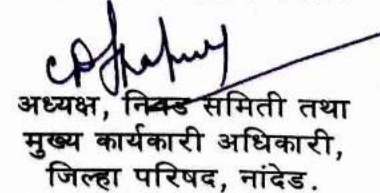 अध्यक्ष, निवड समिती तथा
मुख्य कार्यकारी अधिकारी,
जिल्हा परिषद, नांदेड.